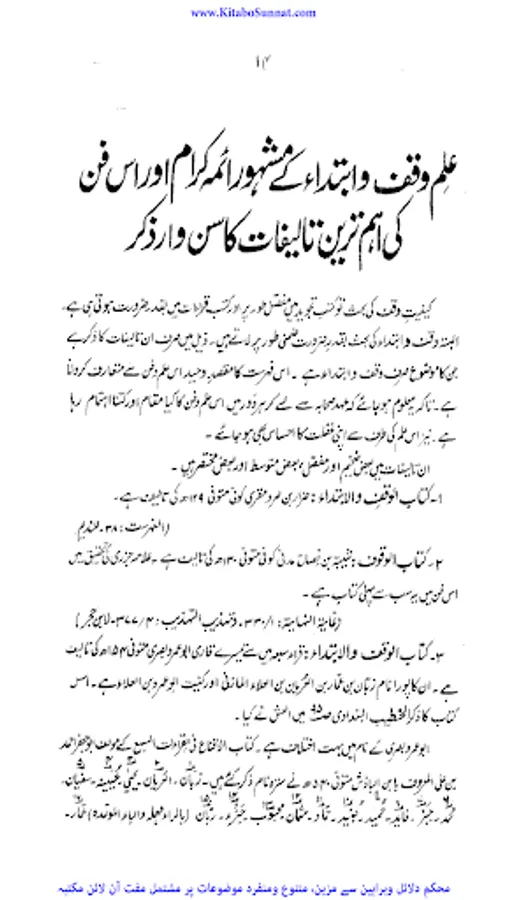 www.KitaboSunnat.com
۱۴
علم وقف و ابتداء کے مشہور ائمہ کرام اور اس فن
کی اہم ترین تالیفات کا سن وار ذکر
کیفیتِ وقف کی بحث تو کتب تجوید میں مفصل طور پر اور کتب قراءات میں بقدر ضرورت ہوتی ہی ہے۔
البتہ وقف و ابتداء کی بحث بقدرِ ضرورت ضمنی طور پر لاتے ہیں۔ ذیل میں صرف ان تالیفات کا ذکر ہے
جن کا موضوع صرف وقف و ابتداء ہے۔ اس فہرست کا مقصدِ وحید اس علم و فن سے متعارف کروانا
ہے۔ تاکہ معلوم ہو جائے کہ عہد صحابہ سے لے کر ہر دور میں اس علم و فن کا کیا مقام اور کتنا اہتمام رہا
ہے۔ نیز اس علم کی طرف سے اپنی غفلت کا احساس بھی ہو جائے۔
ان تالیفات میں بعض ضخیم اور مفصل، بعض متوسط اور بعض مختصر ہیں۔
۱۔ کتاب الوقف والابتداء: ضرار بن صرد مقری کوفی متوفی ۱۲۹ھ کی تالیف ہے۔
(الفہرست: ۳۸۔ للندیم
۲۔ کتاب الوقوف: شیبہ بن نصاح مدنی کوفی متوفی ۱۳۰ھ کی تالیف ہے۔ علامہ جزری کی تحقیق میں
اس فن میں یہ سب سے پہلی کتاب ہے۔
(غایۃ النہایۃ: ۳۳۰/۱۔ و تہذیب التہذیب: ۳۷۷/۴۔ لابن حجر)
۳۔ کتاب الوقف والابتداء: قراء سبعہ میں سے تیسرے قاری ابو عمرو بصری متوفی ۱۵۴ھ کی تالیف
ہے۔ ان کا پورا نام زبان بن عمار بن العریان بن العلاء المازنی اور کنیت ابو عمرو بن العلاء ہے۔ اس
کتاب کا ذکر الخطیب البغدادی میں العش نے کیا۔
ابو عمرو بصری کے نام میں بہت اختلاف ہے۔ کتاب الاقناع فی القراءات السبع کے مولف ابو جعفر احمد
بن علی المعروف بابن الباذش متوفی ۵۴۰ھ نے سترہ نام ذکر کئے ہیں۔ زبان، العریان، یحییٰ، عیینہ، سفیان،
محمد، جبر، فائد، حمید، جنید، حماد، عثمان، محبوب، جزء، ربان (بالراء المہملہ والباء الموحدہ) عمار۔
محکم دلائل وبراہین سے مزین، متنوع ومنفرد موضوعات پر مشتمل مفت آن لائن مکتبہ